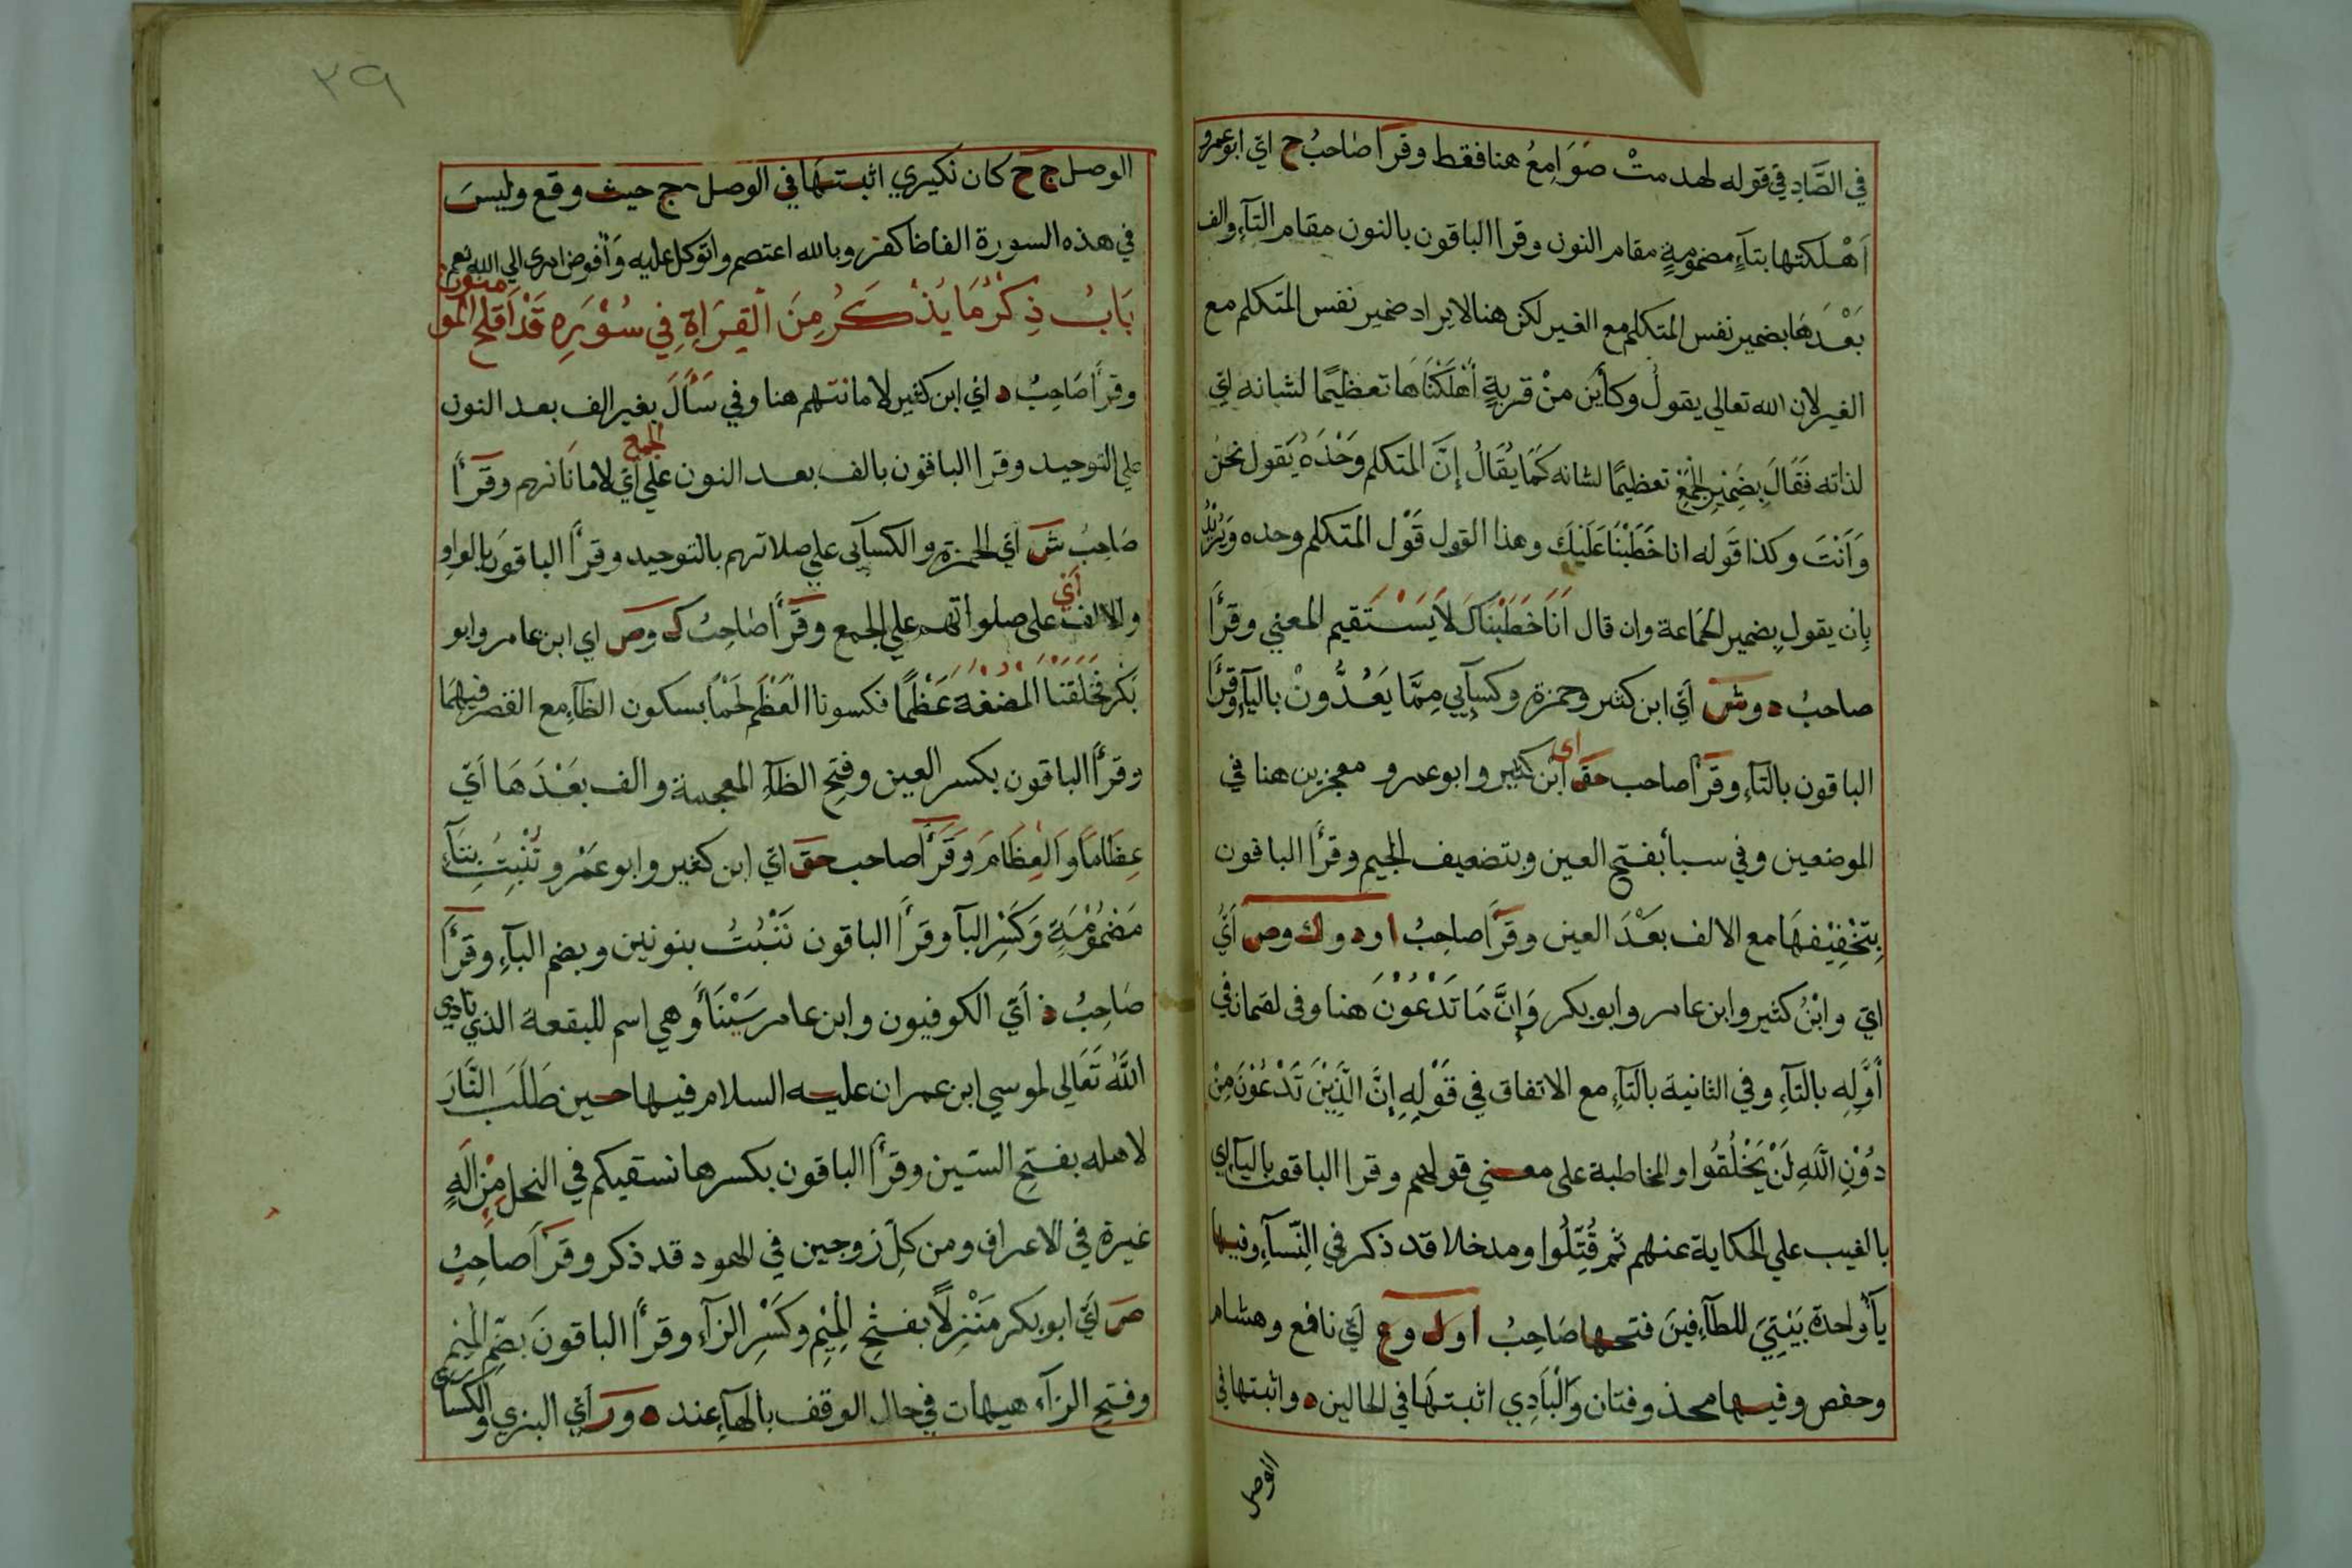 في الصَّادِ في قوله لهدمتْ صَوَامِعُ هنا فقط وقرَأ صاحبُ ح اي ابوعمرو
اَهْلكتها بتآءٍ مضمومةٍ مقام النون وقرا الباقون بالنون مقام التآءِ والف
بَعْدَهَا بضمير نفس المتكلم مع الغير لكن هنا لايراد ضمير نفس المتكلم مع
الغير لان الله تعالي يقولُ وكأين منْ قريةٍ أهْلَكْنَاهَا تعظيمًا لشانه اي
لذاته فَقَالَ بِضَمِيْرِ الْجَمْعِ تعظيمًا لشانه كَمَا يُقَالُ إنَّ المتكلم وَحْدَهُ يَقول نحن
وَاَنْتَ وكذا قَوله انا خَطَبْنَا عَلَيْكَ وهذا القول قَوْل المتكلم وحده وَيُرِيْدُ
بِان يقول بضمير الجَماعة وان قال اَنَا خَطَبْنَاكَ لاَيَسْتَقيم المعني وقرَأ
صاحبُ د وش أي ابن كثير وحمزة وكسآيي مِمَّا يَعُدُّونْ باليآءِ وقرَأ
الباقون بالتآءِ وقرَأ صاحب حق اى ابن كثير وابوعمرو معجزين هنا في
الموضعين وفي سبأ بفتح العين وبتضعيف الجيم وقرأ الباقون
بِتَخْفِيْفِهَا مع الالف بعْدَ العين وقرَأ صاحِبُ ا ود وك وص أيُ
اي وابْنُ كثير وابن عامر وابوبكر وَإنَّ مَا تَدْعُوْنَ هنا وفى لقمان في
أوَّلِه بالتآءِ وفي الثانية بالتآءِ مع الاتفاق في قَوْلِهِ إنَّ الَّذِيْنَ تَدْعُوْنَ مِنْ
دُوْنِ اللّهِ لَنْ يَخْلُقُوا والمخاطبة على معني قولهم وقرا الباقون باليآءِ اي
بالغيب علي الحكاية عنهم ثم قُتِّلُوا ومدخلا قد ذكر في النِّسآءِ وفيها
يآء واحدة بَيْتِيَ للطآءِفينَ فتحها صَاحِبُ ا ول وع اي نافع وهشام
وحفص وفيها محذوفتان وَالْبَادِي اثبتهَا في الحالين د واثبتها في
الوصل
٣٩
الوصل ج ح كان نكيري اثبتهَا في الوصل ج حيث وقع وليسَ
في هذه السورة الفاظا كفز وبالله اعتصم واتوكل عليه وَاُفوض امرى الي الله نعم
بَابُ ذِكْرُ مَا يُذْكَرُ مِنَ الْقِرَاةِ فِي سُوْرَةِ قَدْ اَفلح المو منون
وقرَأ صَاحِبُ د اي ابن كثير لامانتهم هنا وفي سَأَلَ بغير الف بعد النون
علي التوحيد وقرا الباقون بالف بعد النون علي الجمع اي لامانَاتهم وقرَأ
صَاحِبُ ش اي الحمزة والكسآيى علي صلاتهم بالتوحيد وقرَأ الباقونَ بالواو
والالف أي على صلواتهم علي الجمع وقرَأ صَاحِبُ ك وص اي ابن عامر وابو
بَكر فَخَلَقْنَا الْمُضْغَةَ عَظْمًا فكسونا الْعَظْمَ لَحْمًا بسكون الظآءِ مع القصر فيهمَا
وقرأ الباقون بكسر العين وفتح الظآءِ المعجمة والف بَعْدَهَا أي
عِظَامًا وَالْعِظَامَ وَقَرَأ صاحب حق اي ابن كثير وابوعَمْرو تُنْبِتُ بتآءٍ
مَضْمُوْمَةٍ وَكَسْرِ البآ وقرأ الباقون نَنْبُتُ بنونين وبضم البآءِ وقرَأ
صَاحِبُ ذ أي الكوفيون وابن عامر سَيْنَآءَ وهي اسم للبقعة الذي نادي
اللّهُ تَعَالي لموسي ابن عمران عليه السلام فيها حين طَلَبَ النَّارَ
لاهله بفتح السّين وقرأ الباقون بكسرها نسقيكم في النحل مِنْ الَهٍ
غيرة في الاعراف ومن كلّ زوجين في الهود قد ذكر وقرَأ صاحِبُ
ص اي ابوبكر مَنْزِلاً بفتْحِ الْمِيْمِ وكَسْرِ الزآءِ وقرأ الباقونَ بضمِّ الْمِيْم
وفتح الزآء هيهات في حال الوقف بالهآءِ عند ه ور أي البزي والكسائى